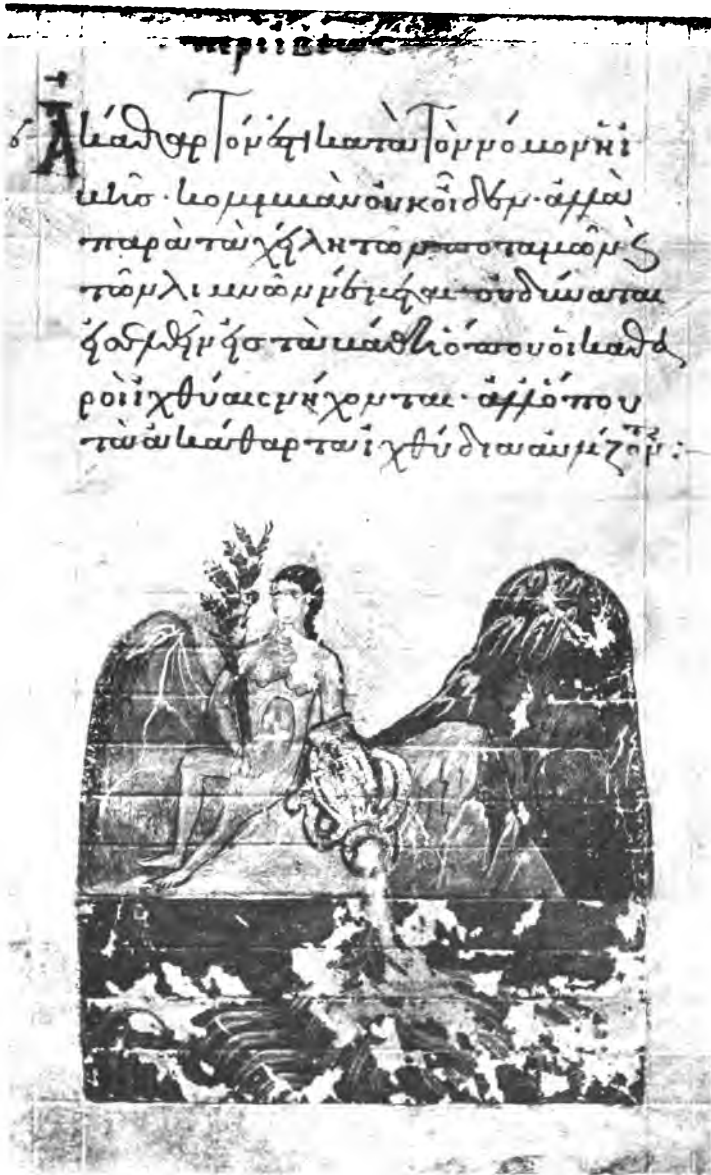 περὶ ἴβεως
Ἀκάθαρτόν ἐστι κατὰ τὸν νόμον ἡ ἴ
βις· κολυμβᾶν οὐκ οἶδεν· ἀλλὰ
παρὰ τὰ χείλη τῶν ποταμῶν καὶ
τῶν λιμνῶν νέμεται· οὐ δύναται
εἰσελθεῖν εἰς τὰ βάθη ὅπου οἱ καθα
ροὶ ἰχθύαις νήχονται· ἀλλ' ὅπου
τὰ ἀκάθαρτα ἰχθύδια αὐλίζονται: